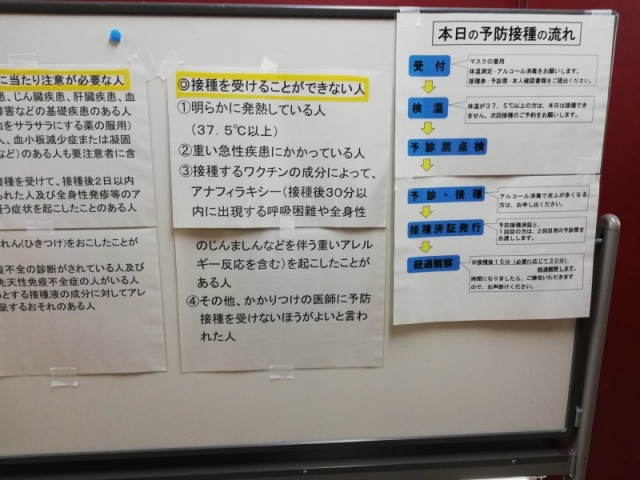 に当たり注意が必要な人
患、じん臓疾患、肝臓疾患、血
障害などの基礎疾患のある人
血をサラサラにする薬の服用)
人、血小板減少症または凝固
など)のある人も要注意者に含
接種を受けて、接種後2日以内
られた人及び全身性発疹等のア
疑う症状を起こしたことのある人
れん(ひきつけ)をおこしたことが
疫不全の診断がされている人及び
先天性免疫不全症の人がいる人
とする接種液の成分に対してアレ
呈するおそれのある人
◎接種を受けることができない人
①明らかに発熱している人
(37.5℃以上)
②重い急性疾患にかかっている人
③接種するワクチンの成分によって、
アナフィラキシー(接種後30分以
内に出現する呼吸困難や全身性
のじんましんなどを伴う重いアレル
ギー反応を含む)を起こしたことが
ある人
④その他、かかりつけの医師に予防
接種を受けないほうがよいと言わ
れた人
本日の予防接種の流れ
受付
マスクの着用
体温測定・アルコール消毒をお願いします。
接種券・予診票・本人確認書類をご提出ください。
検温
体温が37.5℃以上の方は、本日は接種でき
ません。次回接種のご予約をお願いします。
予診票点検
予診・接種
アルコール消毒で皮ふが赤くなる
方は、お申し出ください。
接種済証発行
予防接種済証と、
1回目の方は、2回目用の予診票を
お渡しします。
経過観察
※接種後15分(必要に応じて30分)
経過観察します。
時間になりましたら、ご帰宅いただきます
ので、お声掛けください。